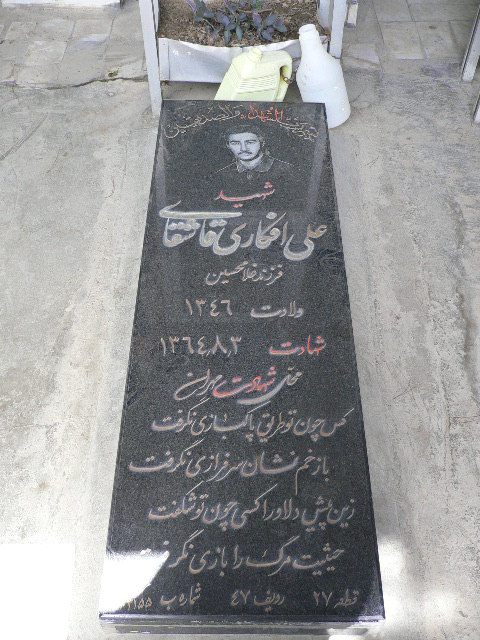 شهید
علی افکاری قاشقای
فرزند غلامحسین
ولادت ۱۳۴۶
شهادت ۱۳۶۴٫۸٫۳
محل شهادت مهران
کس چون تو طریق پاکبازی نگرفت
با زخم نشان سرفرازی نگرفت
زین پیش دلاورا کسی چون تو شگفت
حیثیت مرگ را ببازی نگرفت
قطعه ۲۷ ردیف ۴۷ شماره ب